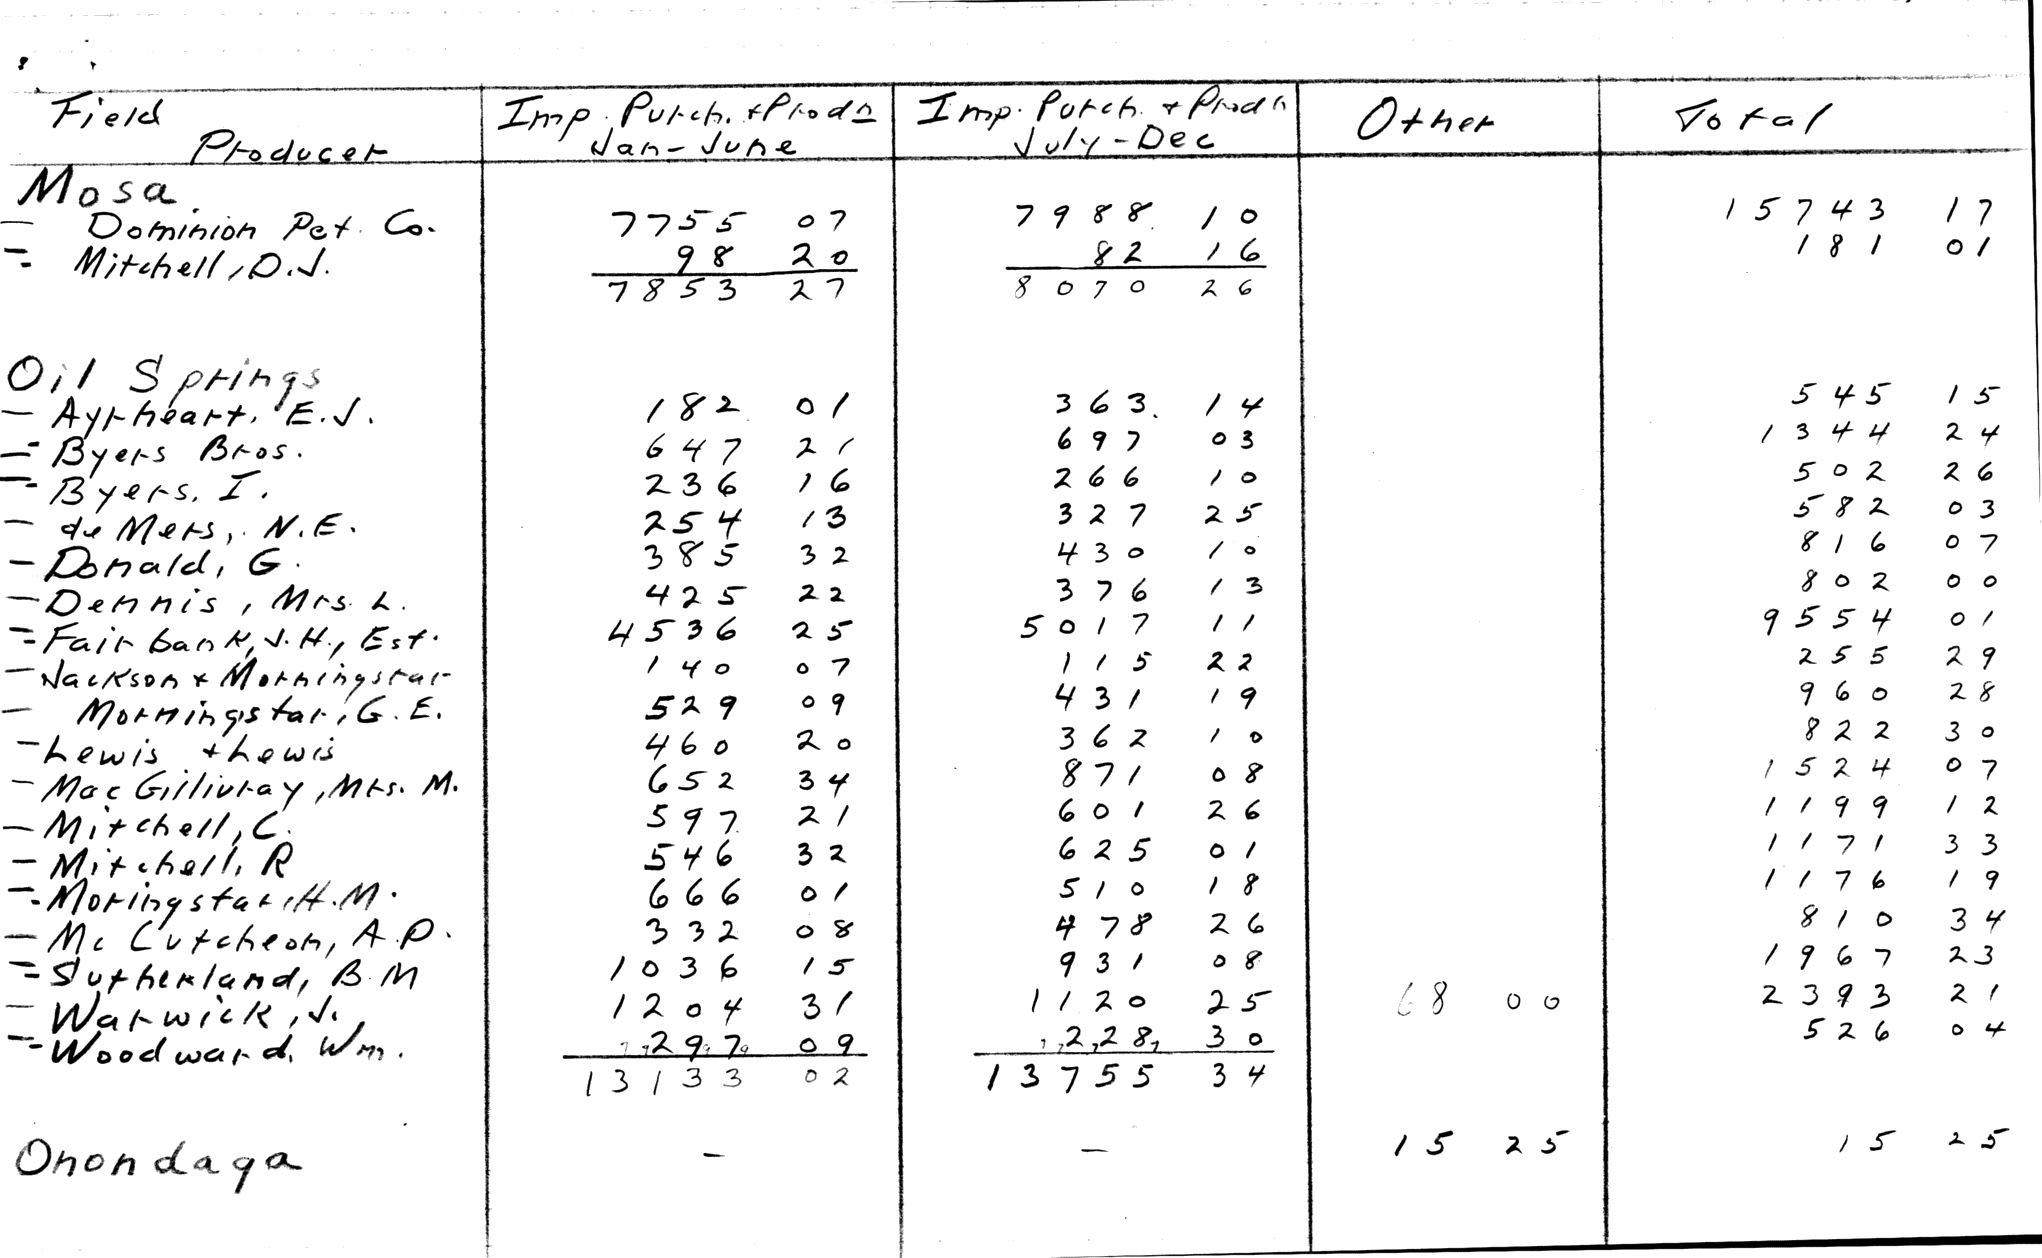 Field Imp. Purch. + Prodn Imp. Purch. + Prodn Other Total
Producer Jan - June July - Dec
Mosa
- Dominion Pet. Co. 7755 07 7988 10 15743 17
= Mitchell, D.J. 98 20 82 16 181 01
7853 27 8070 26
Oil Springs
- Ayrheart, E.J. 182 01 363 14 545 15
= Byers Bros. 647 21 697 03 1344 24
= Byers, I. 236 16 266 10 502 26
- de Mers, N.E. 254 13 327 25 582 03
- Donald, G. 385 32 430 10 816 07
- Dennis, Mrs. L. 425 22 376 13 802 00
= Fairbank, J.H., Est. 4536 25 5017 11 9554 01
- Jackson + Morningstar 140 07 115 22 255 29
- Morningstar, G.E. 529 09 431 19 960 28
- Lewis + Lewis 460 20 362 10 822 30
- MacGillivray, Mrs. M. 652 34 871 08 1524 07
- Mitchell, C. 597 21 601 26 1199 12
- Mitchell, R 546 32 625 01 1171 33
= Moringstar, H.M. 666 01 510 18 1176 19
- McCutcheon, A.D. 332 08 478 26 810 34
= Sutherland, B.M 1036 15 931 08 1967 23
- Warwick, J. 1204 31 1120 25 68 00 2393 21
= Woodward, Wm. 297 09 228 30 526 04
13133 02 13755 34
Onondaga - - 15 25 15 25